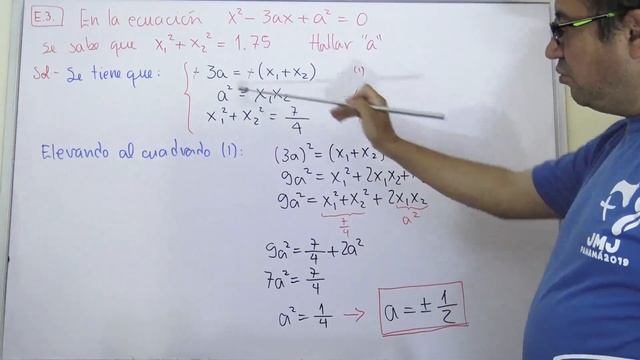 E.3. En la ecuación x² - 3ax + a² = 0
se sabe que x₁² + x₂² = 1.75 Hallar "a"
Sol- Se tiene que: ÷ 3a = ÷ (x₁ + x₂) (1)
a² = x₁x₂
x₁² + x₂² = 7/4
Elevando al cuadrado (1): (3a)² = (x₁ + x₂)
9a² = x₁² + 2x₁x₂ +
9a² = x₁² + x₂² + 2x₁x₂
7/4 a²
9a² = 7/4 + 2a²
7a² = 7/4
a² = 1/4 → a = ± 1/2
JMJ
PANAMÁ2019